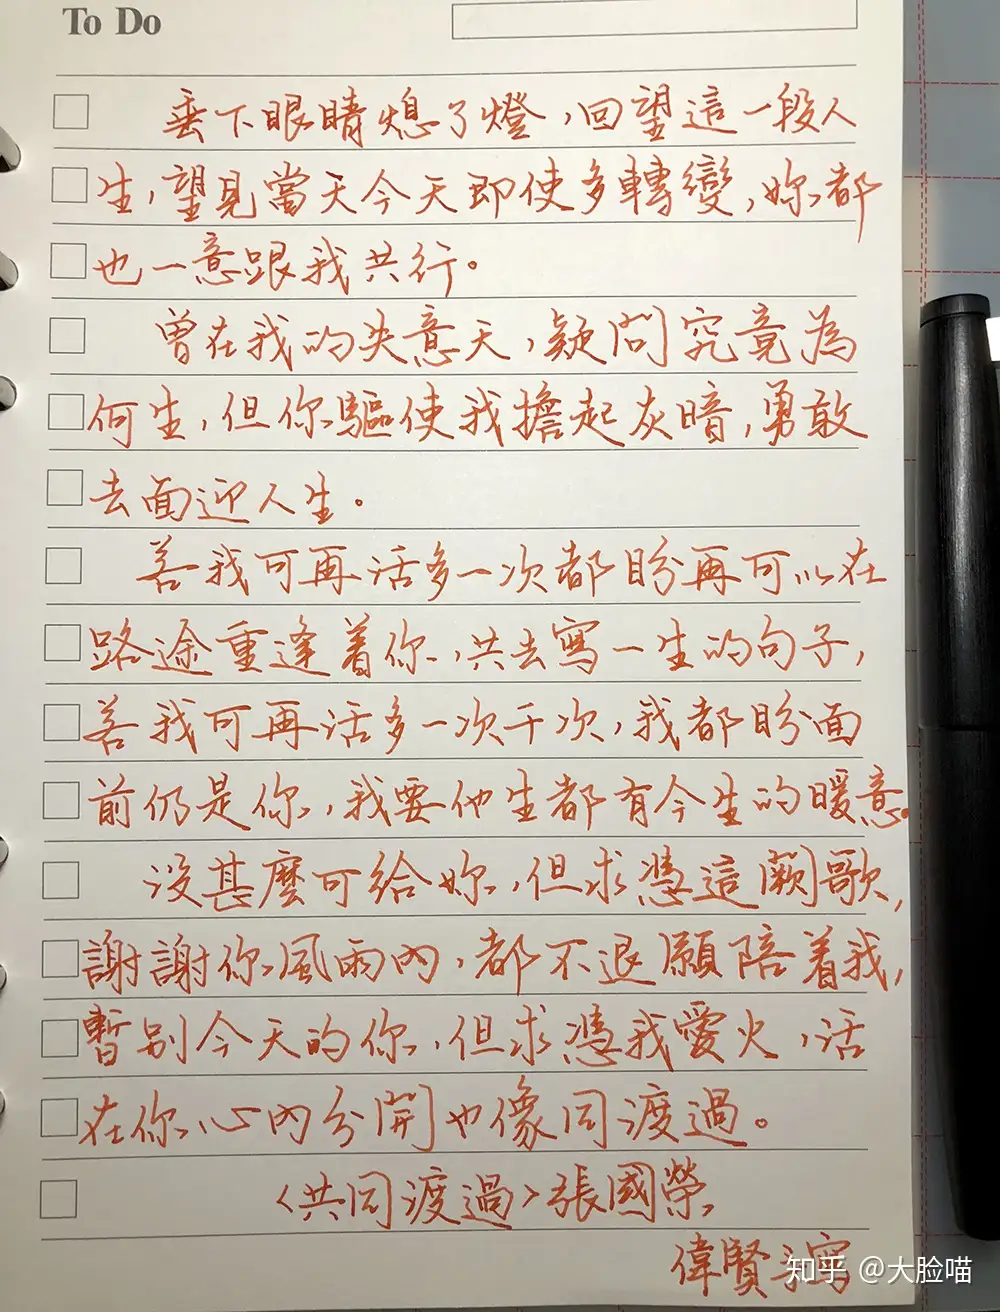 To Do
垂下眼睛熄了燈，回望這一段人
生，望見當天今天即使多轉變，妳都
也一意跟我共行。
曾在我的失意天，疑問究竟為
何生，但你驅使我擔起灰暗，勇敢
去面迎人生。
若我可再活多一次都盼再可以在
路途重逢着你，共去寫一生的句子，
若我可再活多一次千次，我都盼面
前仍是你，我要他生都有今生的暖意。
沒甚麼可給妳，但求憑這闕歌，
謝謝你風雨內，都不退願陪着我，
暫別今天的你，但求憑我愛火，活
在你心內分開也像同渡過。
〈共同渡過〉張國榮
偉賢手寫
知乎 @大脸喵